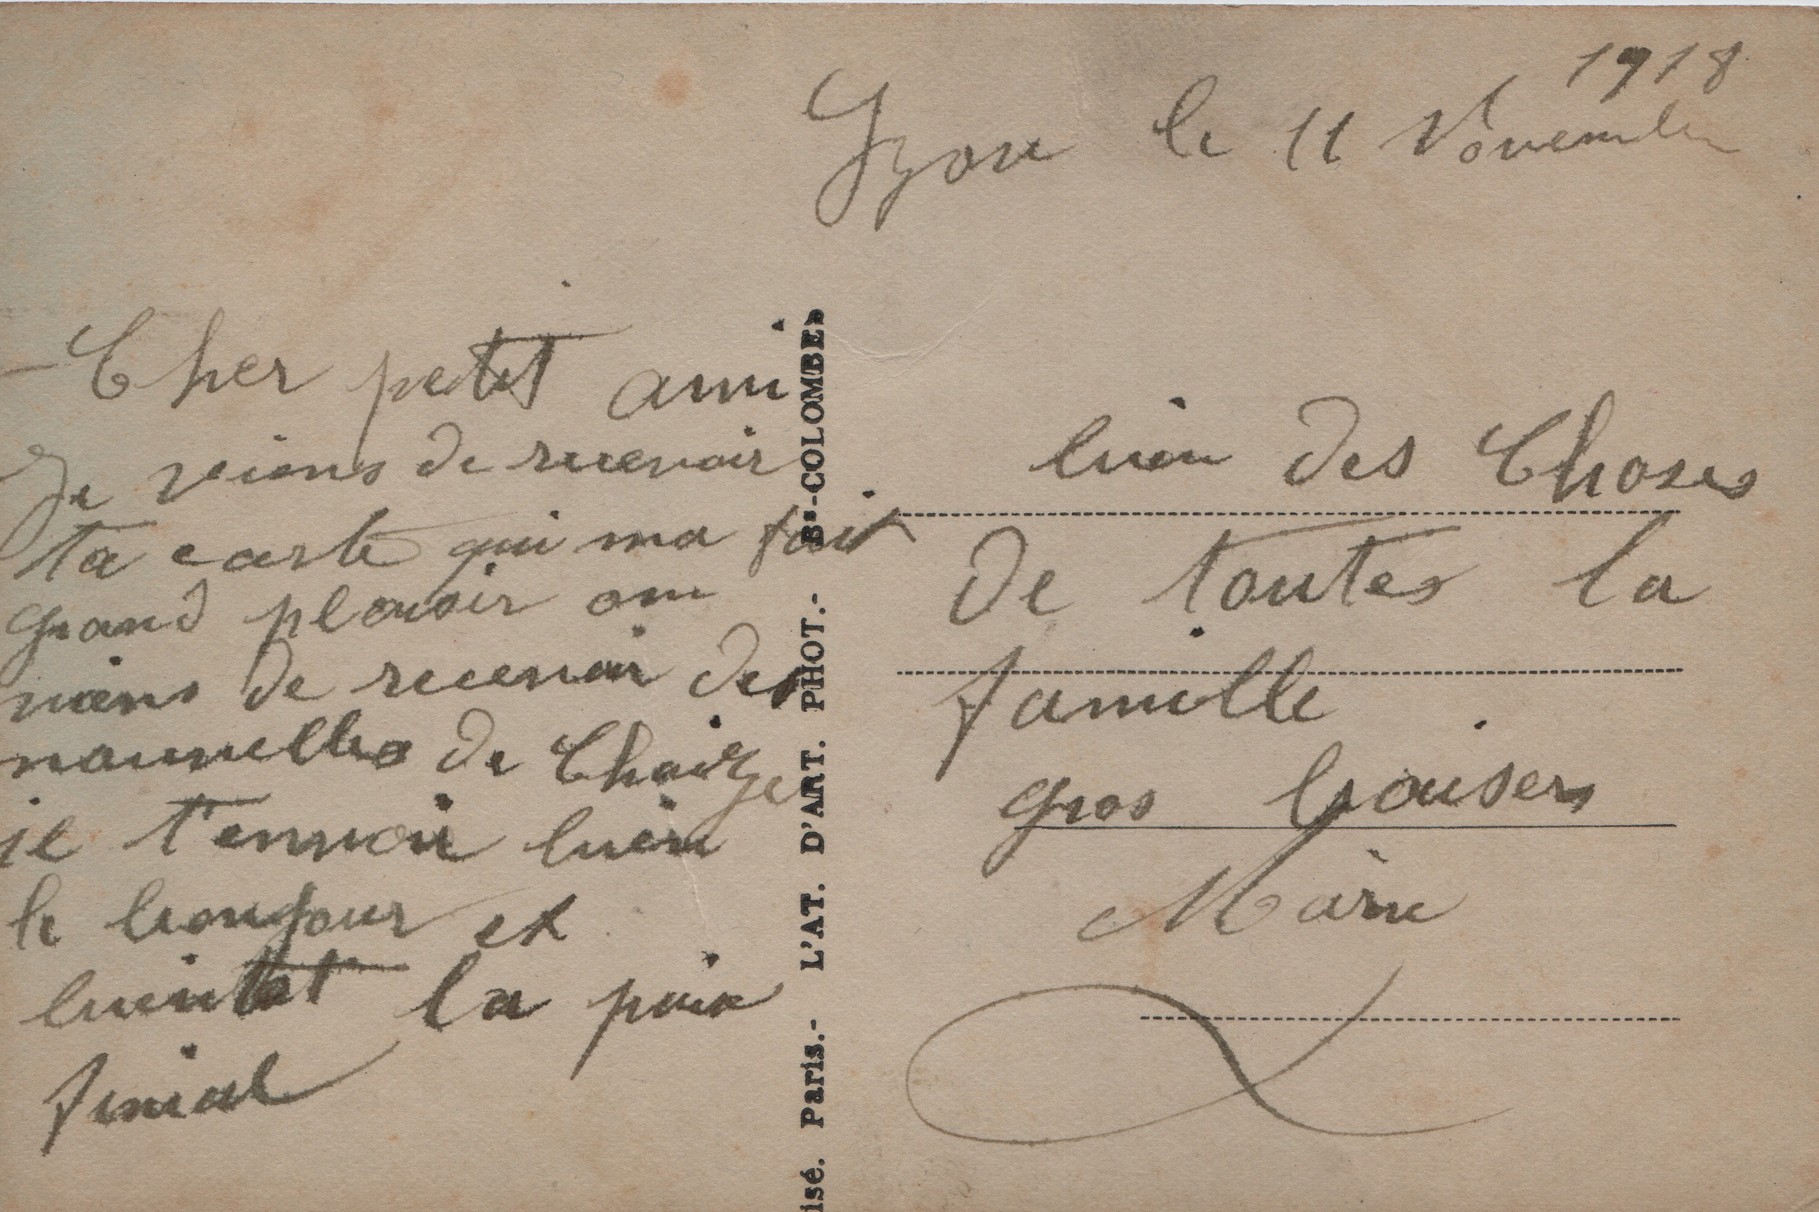 1918
Lyon le 11 Novembre
Cher petit ami
Je veiens de recevoir
ta carte qui ma fait
grand plaisir on
viens de recevoir des
nouvelles de
je t'envoie bien
le bonjour et
bientot la paix
bien des choses
de toutes la
famille
gros baisers
Marie
isé. Paris.- L'AT. D'ART. PHOT.- Bs-COLOMBES